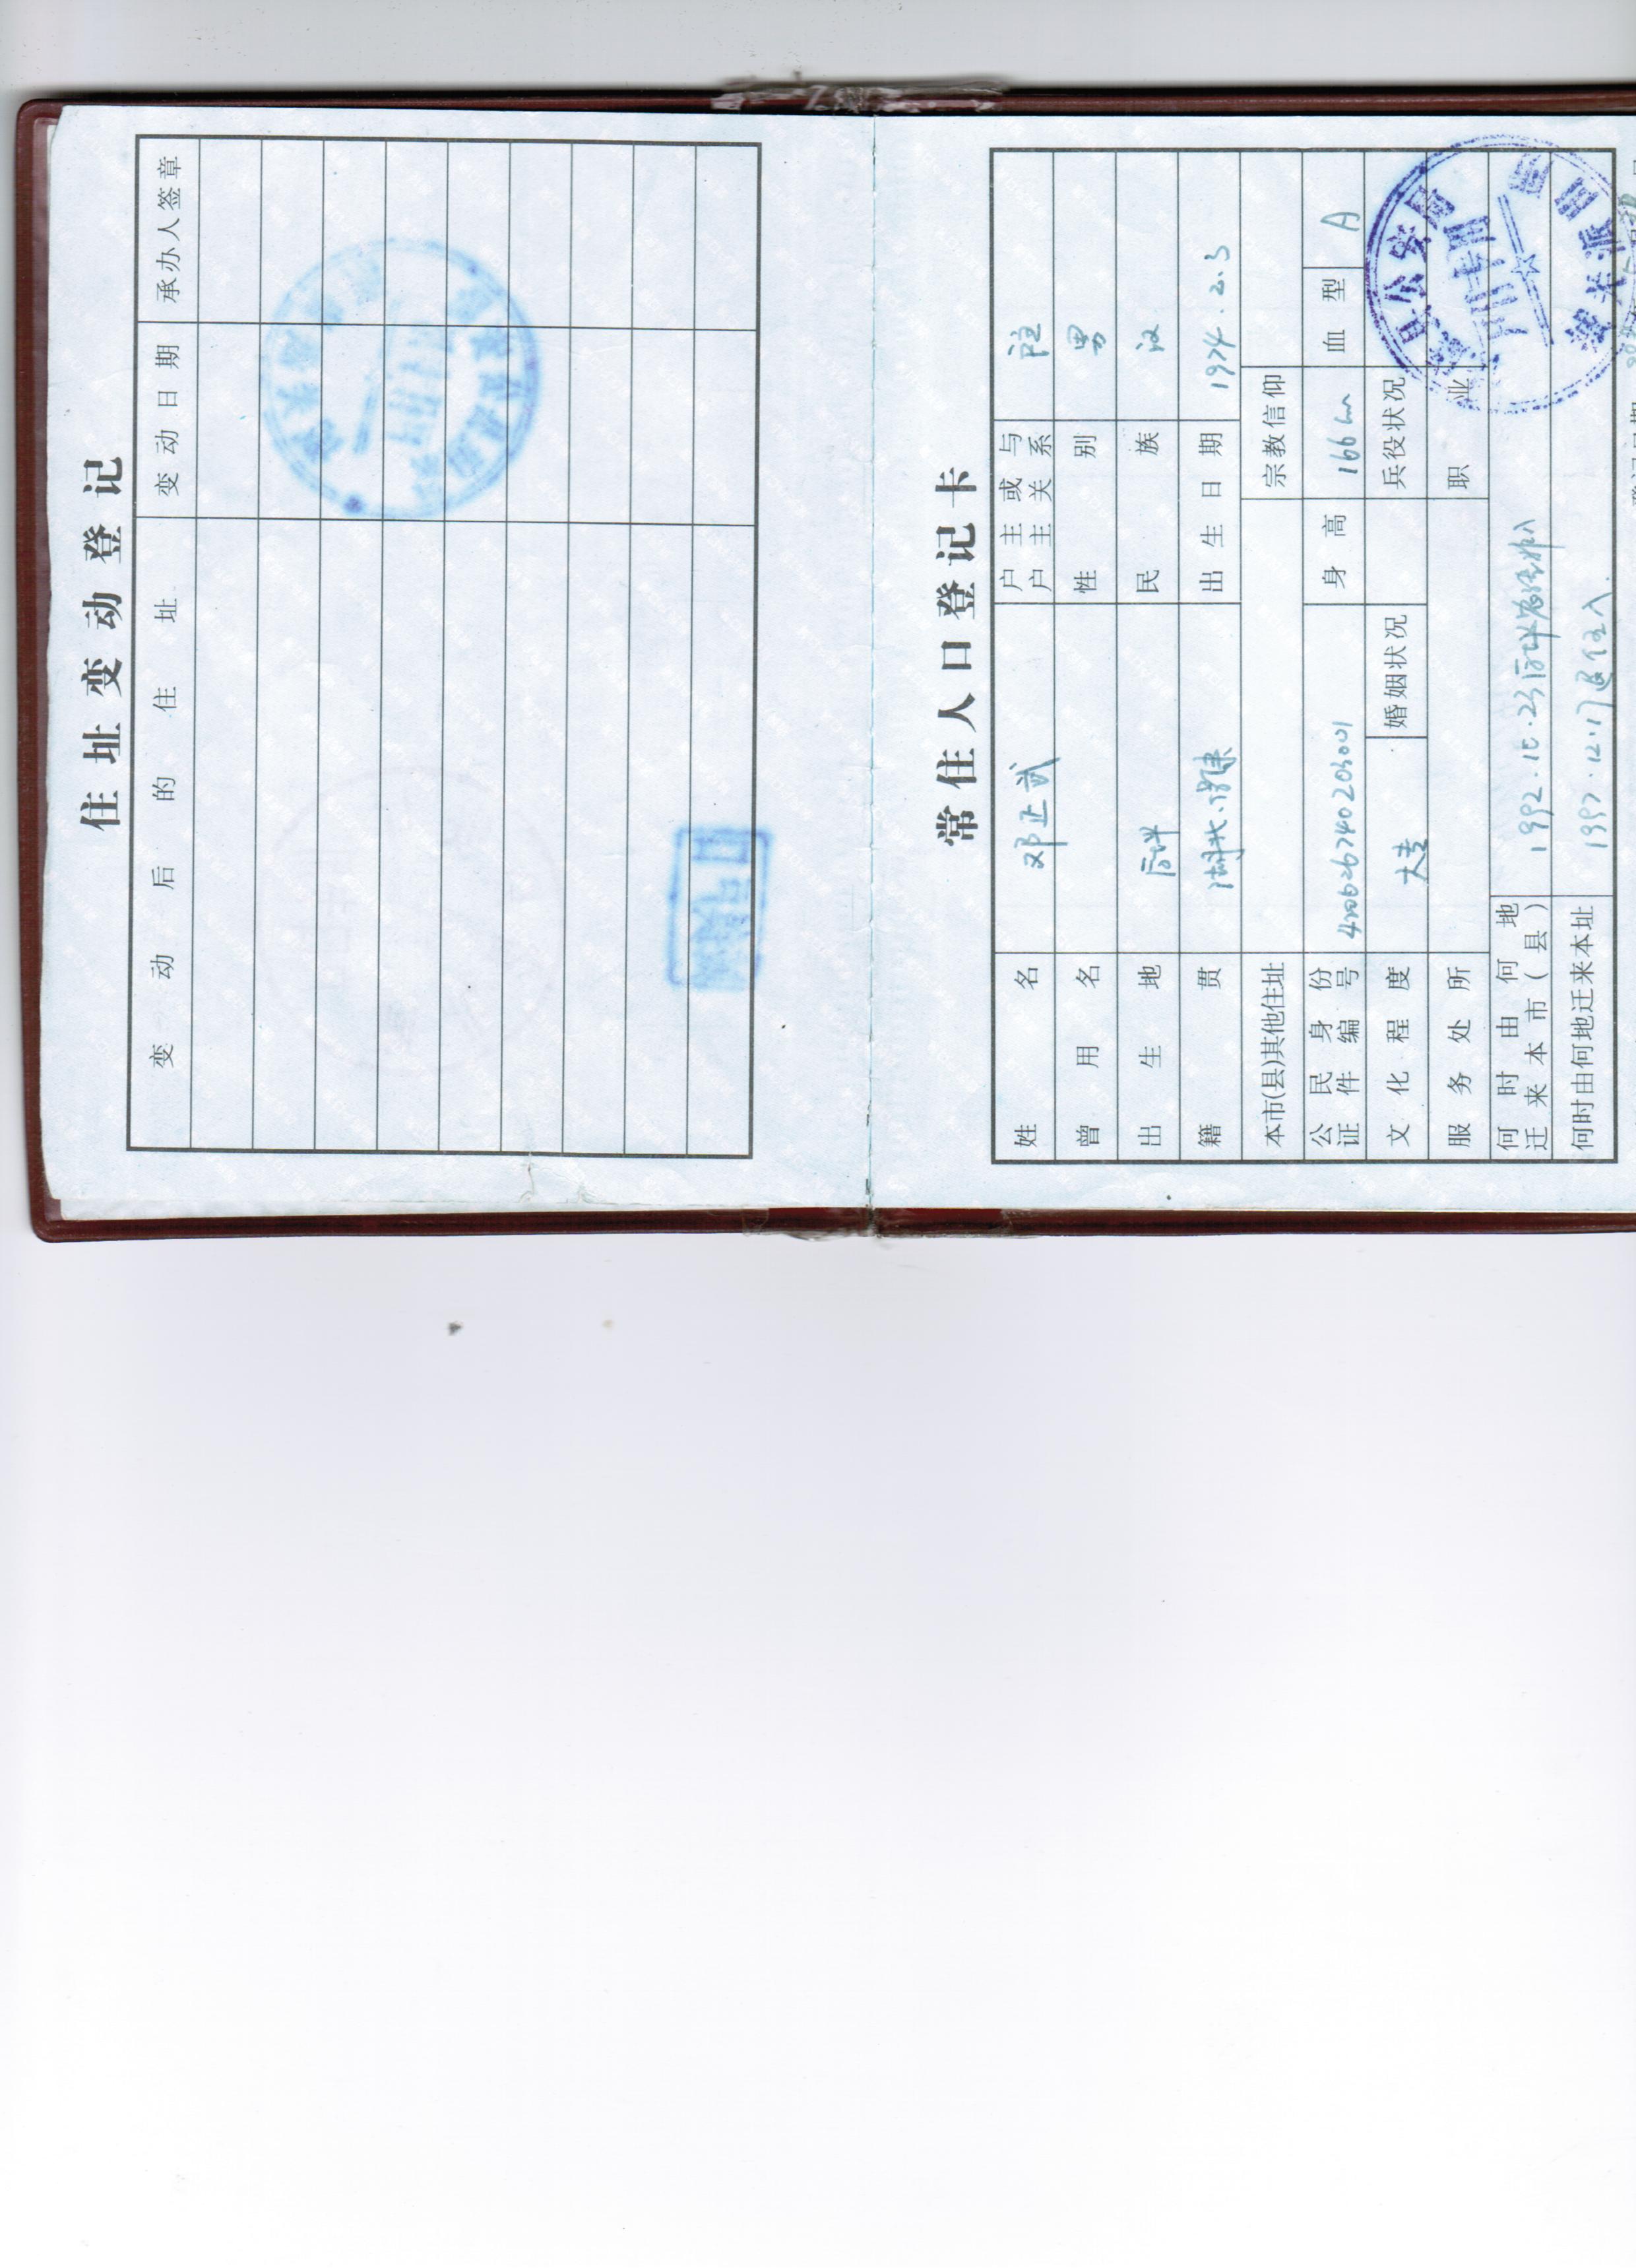 住址变动登记
变动后的住址 变动日期 承办人签章
常住人口登记卡
姓名 邓正武 户主或与户主关系 户主
曾用名 性别 男
出生地 民族 汉
籍贯 湖北 出生日期 1974.2.3
本市(县)其他住址 宗教信仰
公民身份证件编号 身高 166cm 血型 A
文化程度 大专 婚姻状况 兵役状况
服务处所 职业
何时由何地迁来本市(县) 1992.10.23
何时由何地迁来本址 1997.12.17